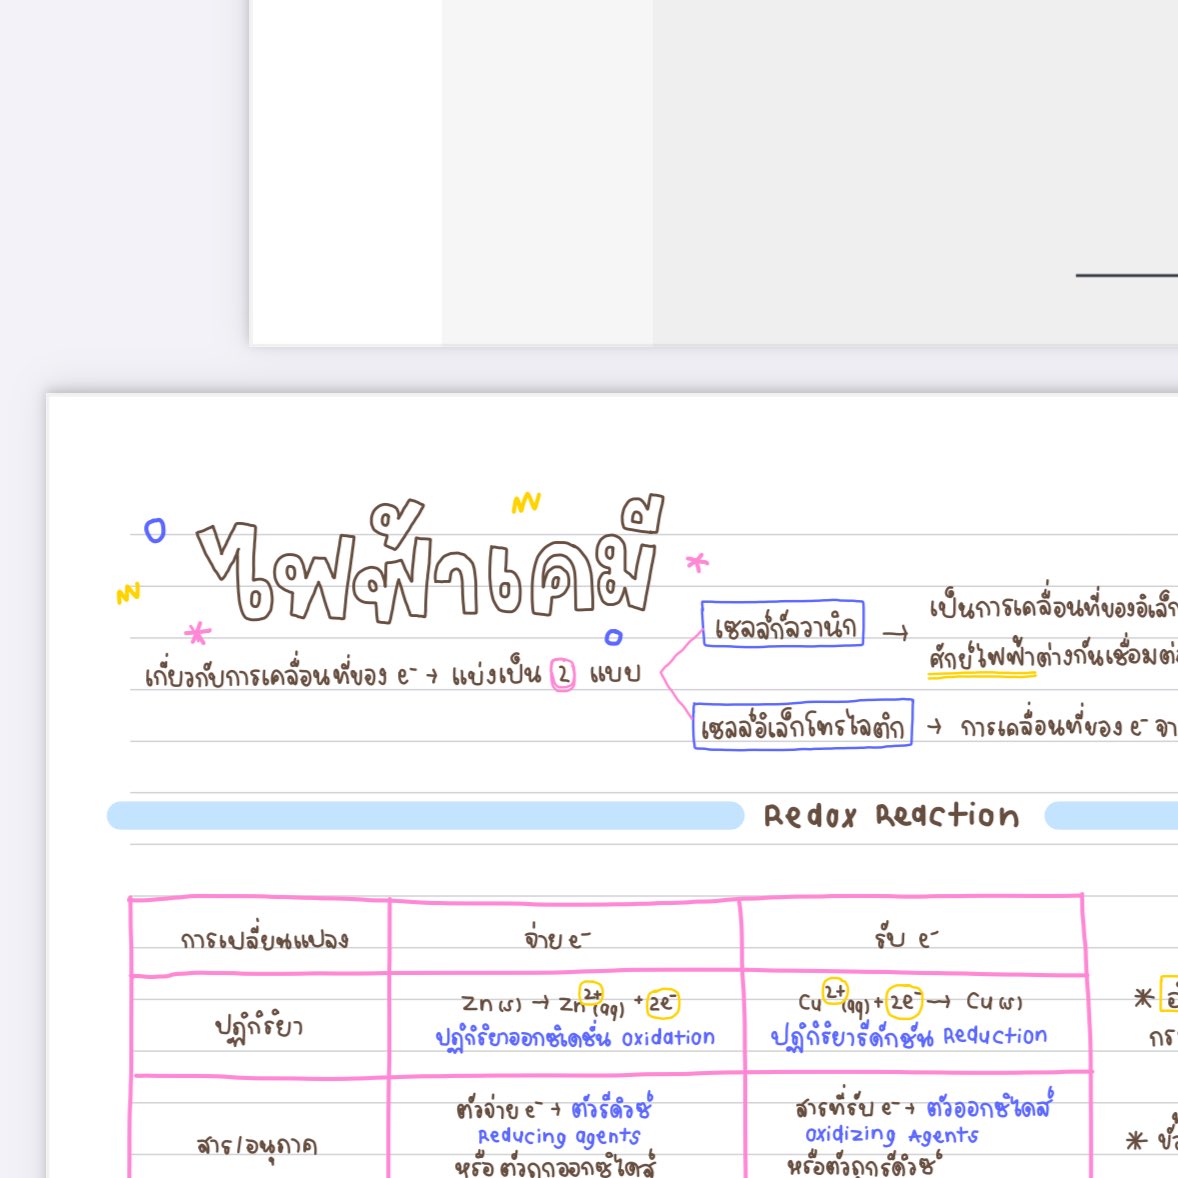 ไฟฟ้าเคมี
เกี่ยวกับการเคลื่อนที่ของ e⁻ → แบ่งเป็น 2 แบบ
เซลล์กัลวานิก → เป็นการเคลื่อนที่ของอิเล็ก
ศักย์ไฟฟ้าต่างกันเชื่อมต่
เซลล์อิเล็กโทรไลติก → การเคลื่อนที่ของ e⁻ จา
Redox Reaction
การเปลี่ยนแปลง จ่าย e⁻ รับ e⁻
ปฏิกิริยา
Zn(s) → Zn²⁺(aq) + 2e⁻
ปฏิกิริยาออกซิเดชั่น Oxidation
Cu²⁺(aq) + 2e⁻ → Cu(s)
ปฏิกิริยารีดักชัน Reduction
สาร/อนุภาค
ตัวจ่าย e⁻ → ตัวรีดิวซ์
Reducing agents
หรือ ตัวถูกออกซิไดส์
สารที่รับ e⁻ → ตัวออกซิไดส์
Oxidizing Agents
หรือตัวถูกรีดิวซ์
*
กร
*